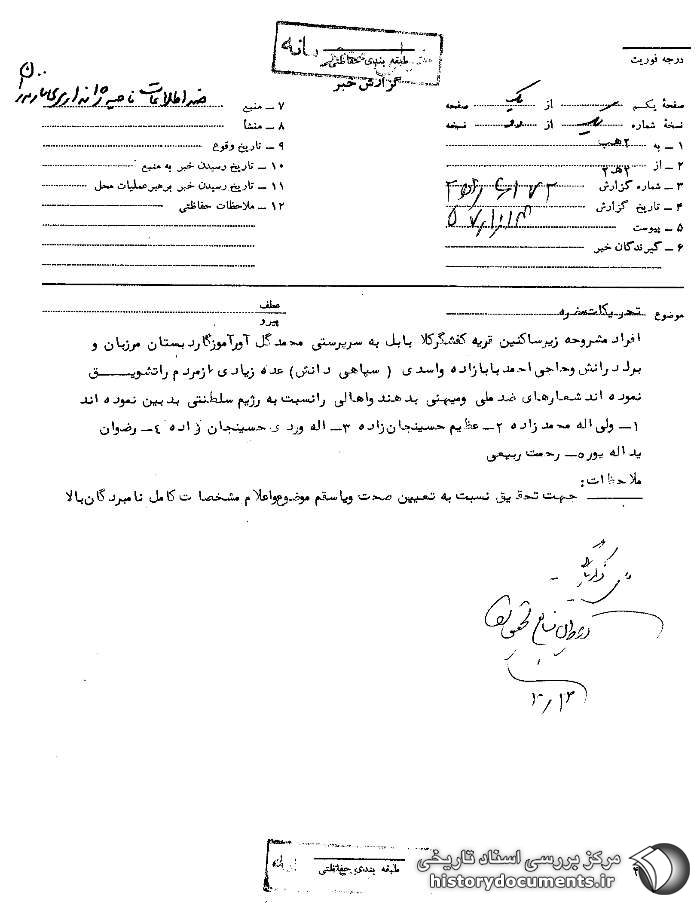 طبقه بندی حفاظتی
درجه فوریت
گزارش خبر
صفحهٔ یکم از یک صفحه
نسخهٔ شماره یک از دو نسخه
۱ – به ۲هب
۲ – از ۲ه۲
۳ – شماره گزارش
۴ – تاریخ گزارش
۵ – پیوست
۶ – گیرندگان خبر
۷ – منبع ضد اطلاعات ناحیه ژاندارمری
۸ – منشأ
۹ – تاریخ وقوع
۱۰ – تاریخ رسیدن خبر به منبع
۱۱ – تاریخ رسیدن خبر برهبرعملیات محل
۱۲ – ملاحظات حفاظتی
موضوع تحریکات مضره
عطف
پیرو
افراد مشروحه زیرساکنین قریه کفشگرکلا بابل به سرپرستی محمدگل آورآموزگاردبستان مرزبان و
برادرانش وحاجی احمدبابازاده واسدی ( سپاهی دانش) عده زیادی ازمردم راتشویق
نموده اند شعارهای ضد ملی ومیهنی بدهند واهالی رانسبت به رژیم سلطنتی بدبین نموده اند
۱– ولی اله محمدزاده ۲– عظیم حسینجان زاده ۳– اله وردی حسینجان زاده ۴– رضوان
یداله پور ۵– رحمت ربیعی
ملاحظات:
جهت تحقیق نسبت به تعیین صحت ویاسقم موضوع واعلام مشخصات کامل نامبردگان بالا
طبقه بندی حفاظتی
مرکز بررسی اسناد تاریخی
historydocuments.ir